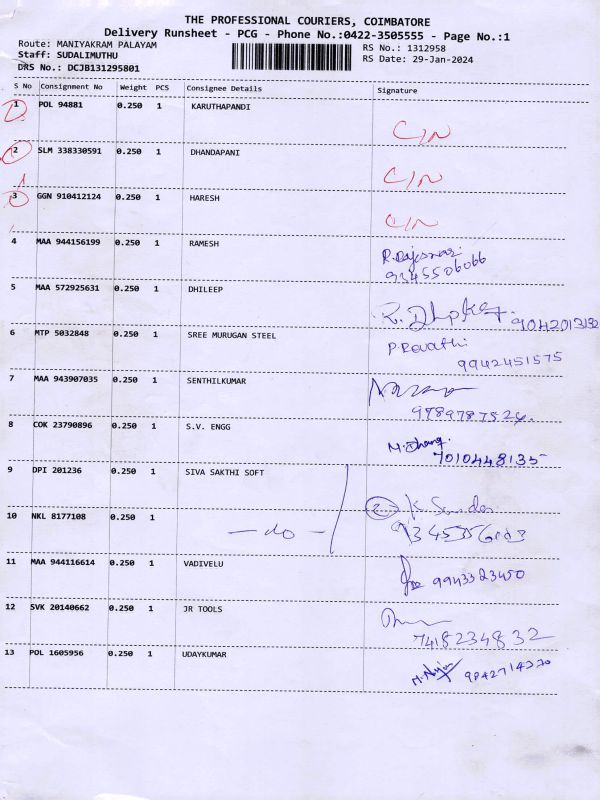 THE PROFESSIONAL COURIERS, COIMBATORE
Delivery Runsheet - PCG - Phone No.:0422-3505555 - Page No.:1
Route: MANIYAKRAM PALAYAM RS No.: 1312958
Staff: SUDALIMUTHU RS Date: 29-Jan-2024
DRS No.: DCJB131295801
S No Consignment No Weight PCS Consignee Details Signature
1 POL 94881 0.250 1 KARUTHAPANDI C/N
2 SLM 338330591 0.250 1 DHANDAPANI C/N
3 GGN 910412124 0.250 1 HARESH C/N
4 MAA 944156199 0.250 1 RAMESH R.Rajeswari
9345506066
5 MAA 572925631 0.250 1 DHILEEP 9042013132
6 MTP 5032848 0.250 1 SREE MURUGAN STEEL P.Revathi
9942451575
7 MAA 943907035 0.250 1 SENTHILKUMAR
9789787524.
8 COK 23790896 0.250 1 S.V. ENGG
7010448135
9 DPI 201236 0.250 1 SIVA SAKTHI SOFT
10 NKL 8177108 0.250 1 - do - 2
11 MAA 944116614 0.250 1 VADIVELU 9943323450
12 SVK 20140662 0.250 1 JR TOOLS
7418234832
13 POL 1605956 0.250 1 UDAYKUMAR